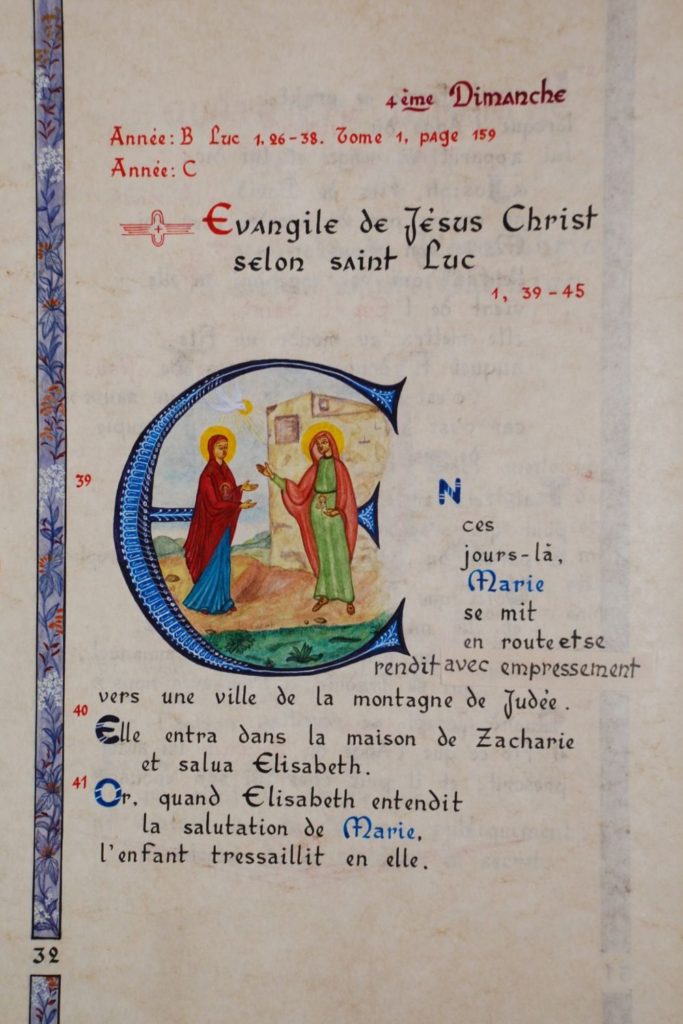 4ème Dimanche
Année: B Luc 1. 26-38. Tome 1, page 159
Année: C
Evangile de Jésus Christ
selon saint Luc
1, 39-45
39
EN
ces
jours-là,
Marie
se mit
en route et se
rendit avec empressement
vers une ville de la montagne de Judée.
40
Elle entra dans la maison de Zacharie
et salua Elisabeth.
41
Or, quand Elisabeth entendit
la salutation de Marie,
l'enfant tressaillit en elle.
32